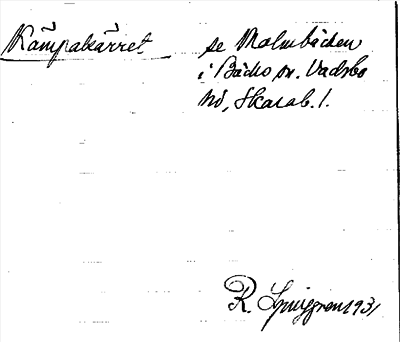 Kämpakärret se Malmbäcken
i Bäcks sn. Vadsbo
hd, Skarab. l.
R. Ljunggren 1931